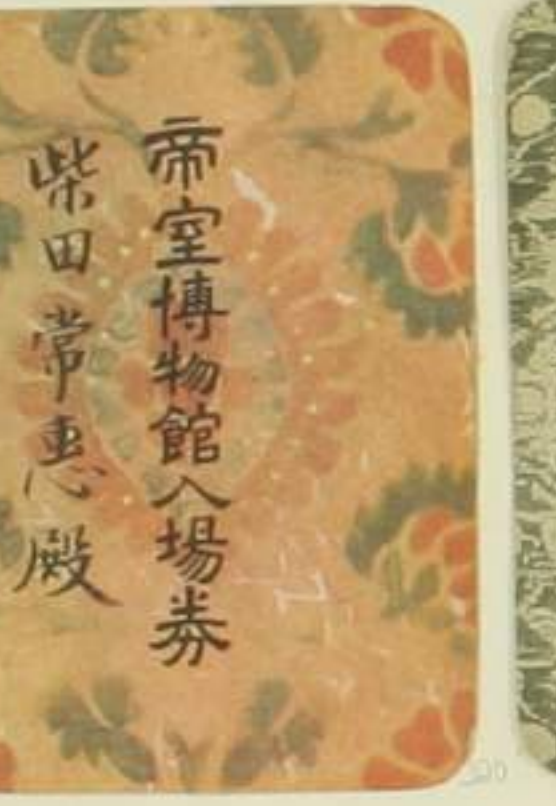 帝室博物館入場券
柴田常恵殿